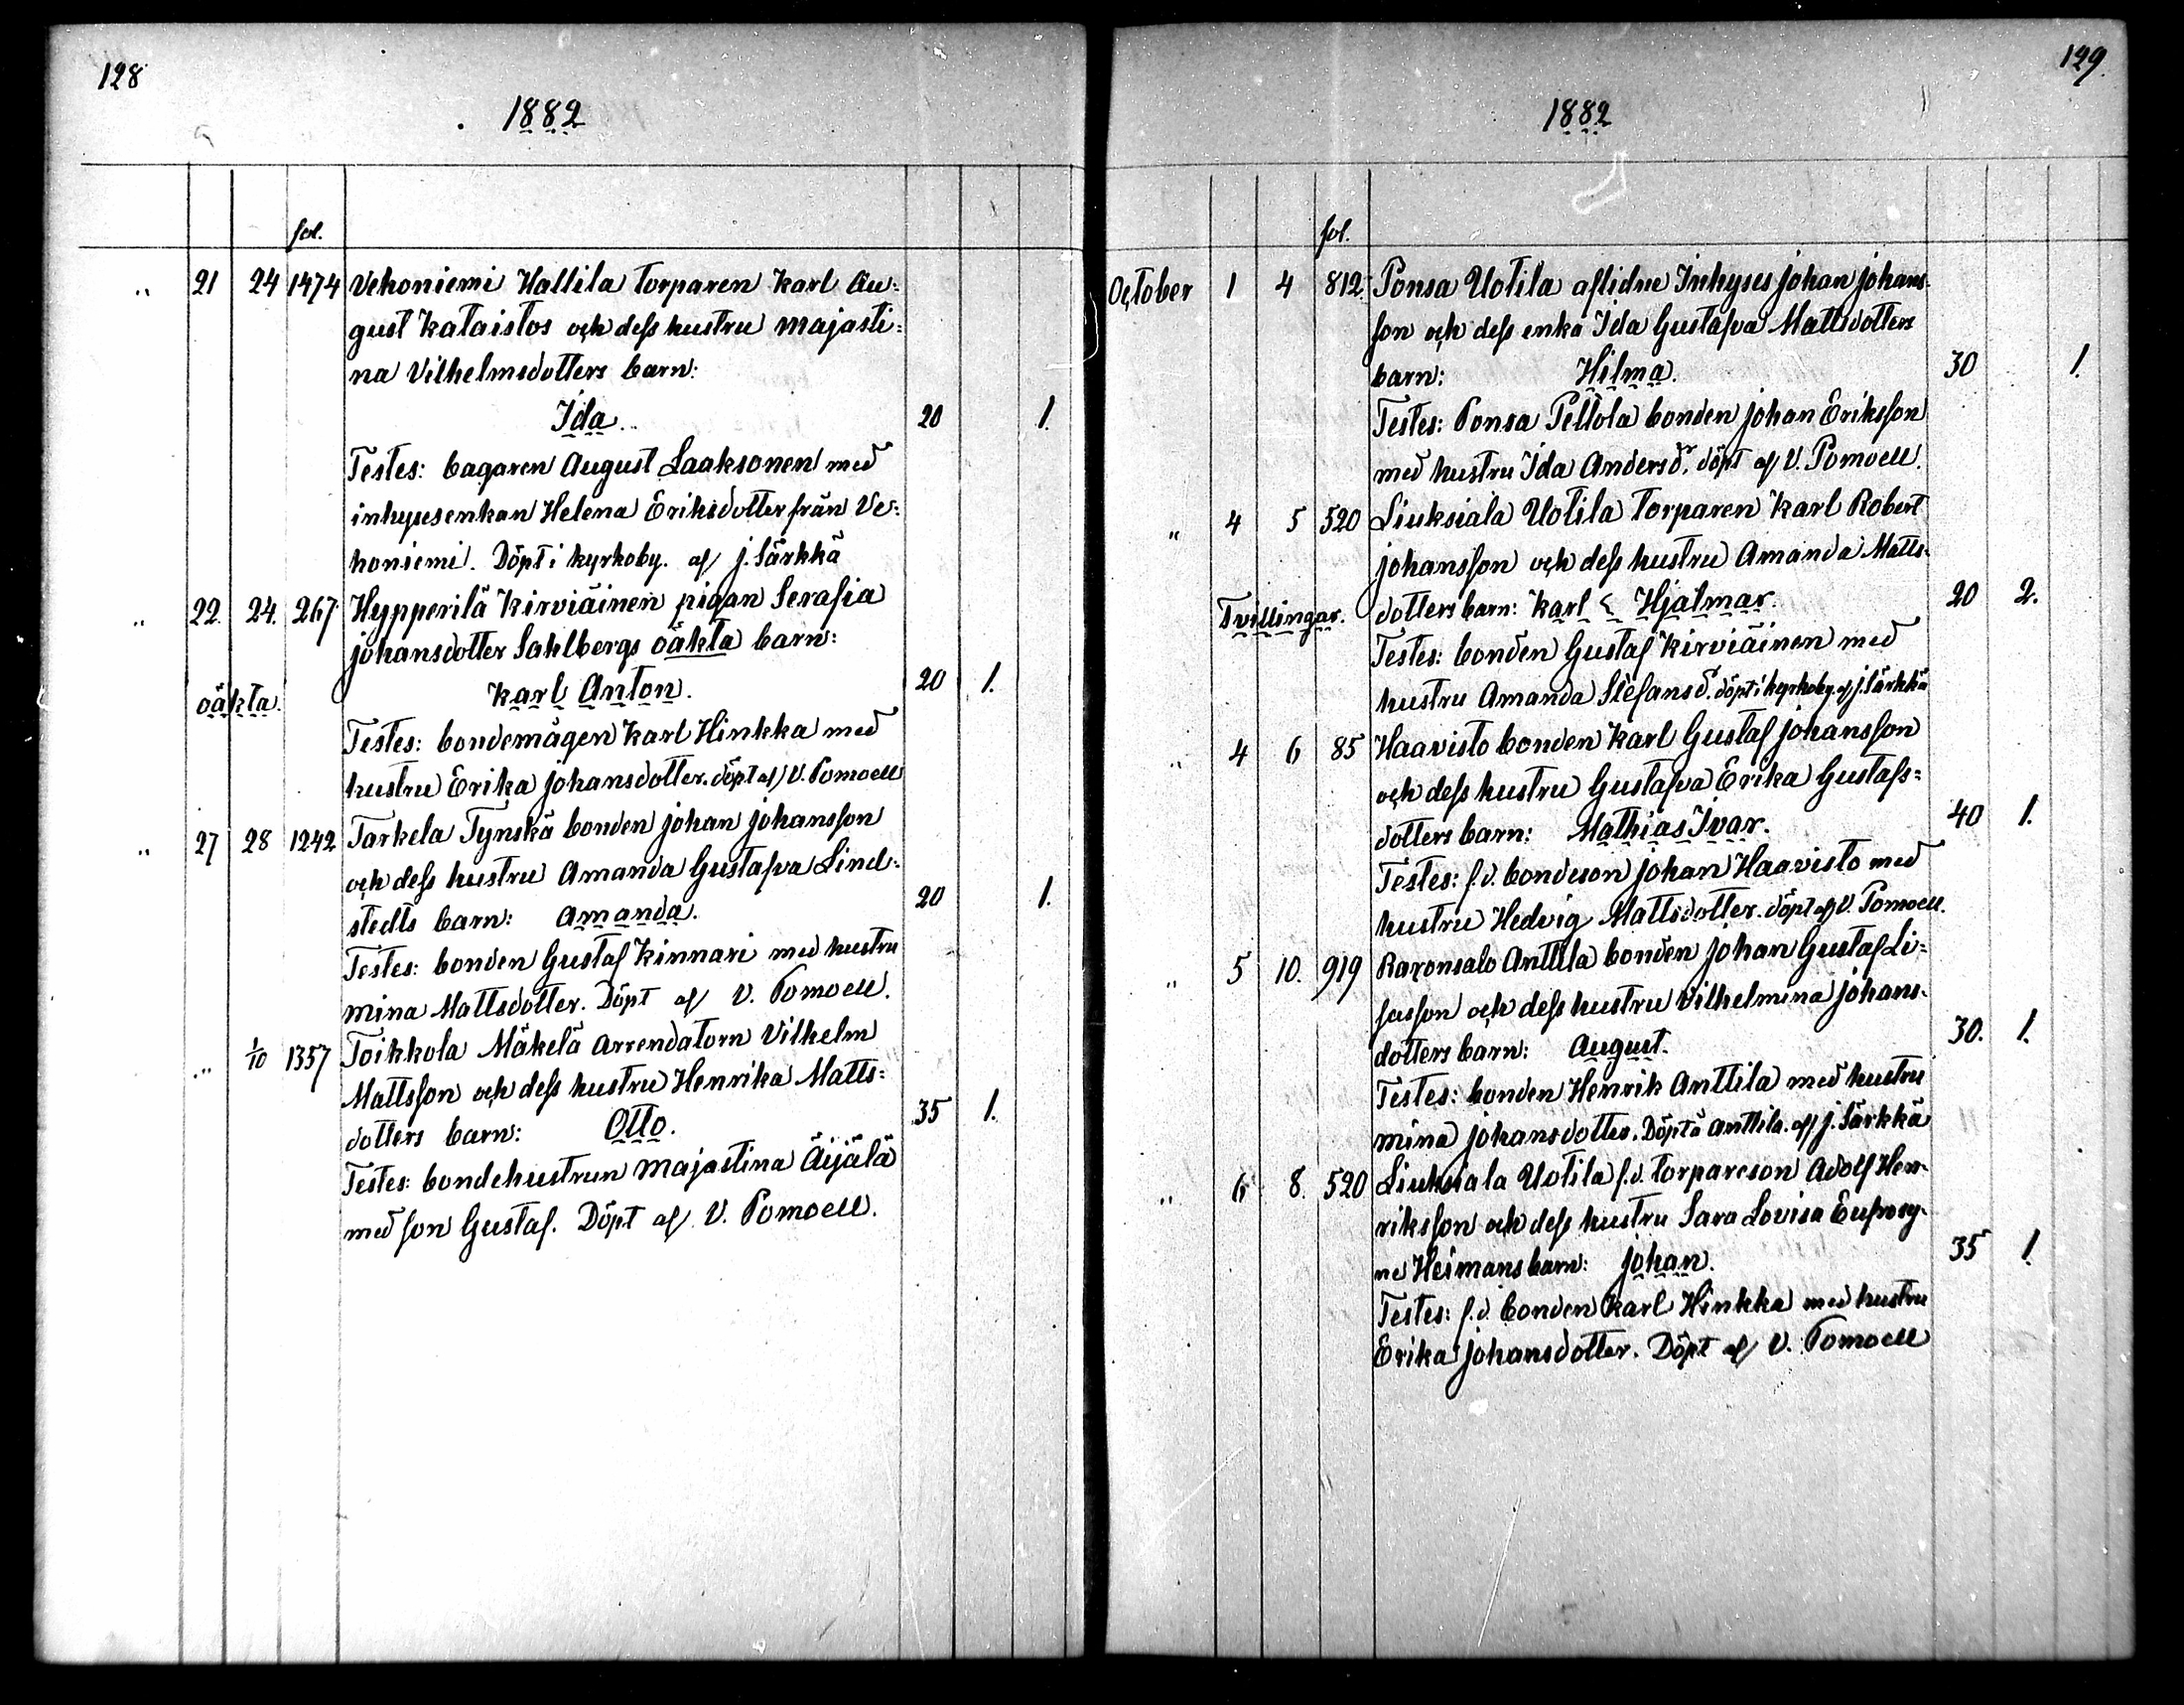 128
1882
fol.
„ 21 24 1474 Vehoniemi Hallila torparen Karl Au=
gust Kataistos och dess hustru Majasti=
na Vilhelmsdotters barn:
Ida. 20 1.
Testes: bagaren August Laaksonen med
inhysesenkan Helena Eriksdotter från Ve=
honiemi. Döpt i kyrkoby. af J. Särkkä
„ 22. 24. 267 Hypperilä Kirviäinen pigan Serafia
Johansdotter Sahlbergs oäkta barn:
oäkta. Karl Anton. 20 1.
Testes: bondemågen Karl Hinkka med
hustru Erika Johansdotter. döpt af V. Pomoell
„ 27 28 1242 Tarkela Tynskä bonden Johan Johansson
och dess hustru Amanda Gustafva Lind=
stedts barn: Amanda. 20 1.
Testes: bonden Gustaf Kinnari med hustru
Mina Mattsdotter. Döpt af V. Pomoell.
„ 1/10 1357 Toikkola Mäkelä arrendatorn Vilhelm
Mattsson och dess hustru Henrika Matts=
dotters barn: Otto. 35 1.
Testes: bondehustrun Majastina Äijälä
med son Gustaf. Döpt af V. Pomoell.
129.
1882
fol.
October 1 4 812. Ponsa Uotila aflidne Inhyses Johan Johans-
son och dess enka Ida Gustafva Mattsdotters
barn: Hilma. 30 1.
Testes: Ponsa Pettola bonden Johan Eriksson
med hustru Ida Andersdr. döpt af V. Pomoell.
„ 4 5 520 Liuksiala Uotila torparen Karl Robert
Johansson och dess hustru Amanda Matts-
Tvillingar. dotters barn: Karl & Hjalmar. 20 2.
Testes: bonden Gustaf Kirviäinen med
hustru Amanda Stefansd. döpt i kyrkoby. af J. Särkkä
„ 4 6 85 Haavisto bonden Karl Gustaf Johansson
och dess hustru Gustafva Erika Gustafs=
dotters barn: Mathias Ivar. 40 1.
Testes: f.d. bondeson Johan Haavisto med
hustru Hedvig Mattsdotter. döpt af V. Pomoell.
„ 5 10. 919 Raronsalo Anttila bonden Johan Gustaf Li=
sasson och dess hustru Vilhelmina Johans-
dotters barn: August. 30. 1.
Testes: bonden Henrik Anttila med hustru
Mina Johansdotter. Döpt å Anttila. af J. Särkkä
„ 6 8. 520 Liuksiala Uotila f.d. torpareson Adolf Hen-
riksson och dess hustru Sara Lovisa Eufrosy-
ne Heimans barn: Johan. 35 1.
Testes: f.d. bonden Karl Hinkka med hustru
Erika Johansdotter. Döpt af V. Pomoell